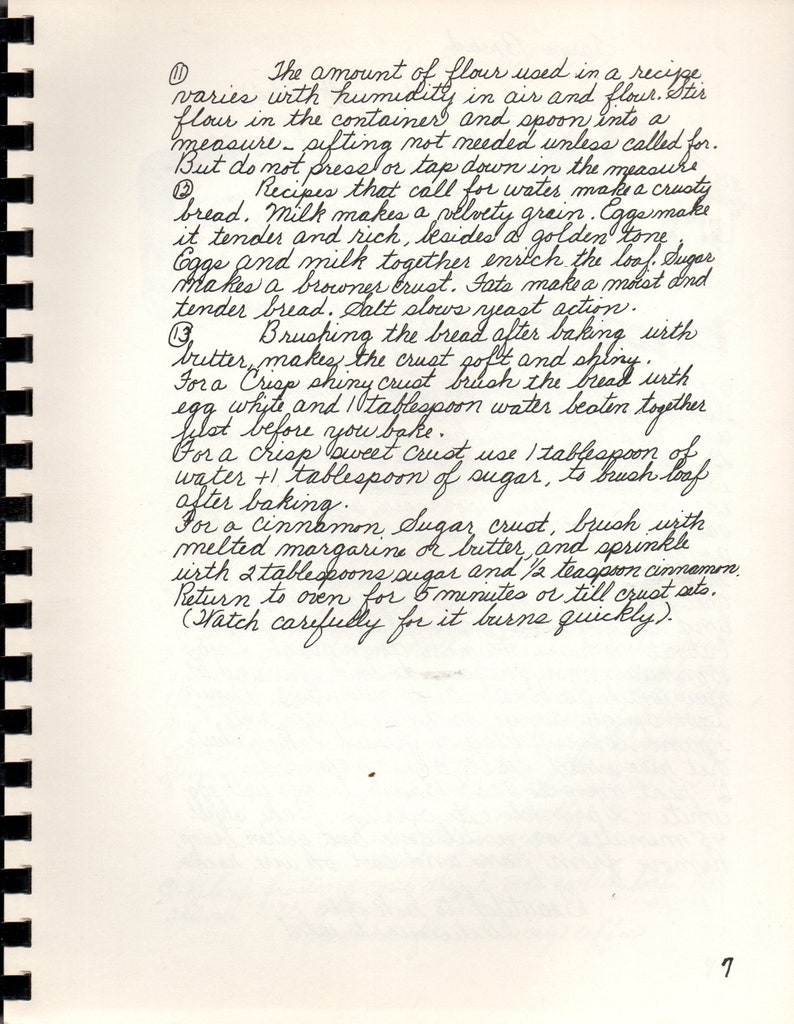 ⑪ The amount of flour used in a recipe
varies with humidity in air and flour. Stir
flour in the container and spoon into a
measure - sifting not needed unless called for.
But do not press or tap down in the measure
⑫ Recipes that call for water make a crusty
bread. Milk makes a velvety grain. Eggs make
it tender and rich, besides a golden tone.
Eggs and milk together enrich the loaf. Sugar
makes a browner crust. Fats make a moist and
tender bread. Salt slows yeast action.
⑬ Brushing the bread after baking with
butter, makes the crust soft and shiny.
For a Crisp shiny crust brush the bread with
egg white and 1 tablespoon water beaten together
just before you bake.
For a crisp sweet crust use 1 tablespoon of
water + 1 tablespoon of sugar, to brush loaf
after baking.
For a cinnamon Sugar crust, brush with
melted margarine or butter, and sprinkle
with 2 tablespoons sugar and 1/2 teaspoon cinnamon.
Return to oven for 5 minutes or till crust sets.
(Watch carefully for it burns quickly).
7